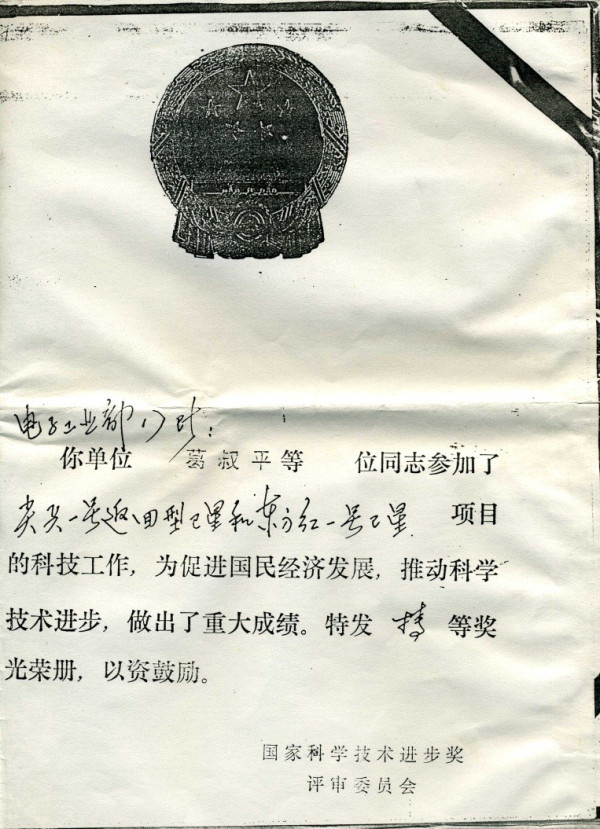 电子工业部17所:
你单位 葛叔平等 位同志参加了
尖兵一号返回型卫星和东方红一号卫星 项目
的科技工作，为促进国民经济发展，推动科学
技术进步，做出了重大成绩。特发 特 等奖
光荣册，以资鼓励。
国家科学技术进步奖
评审委员会